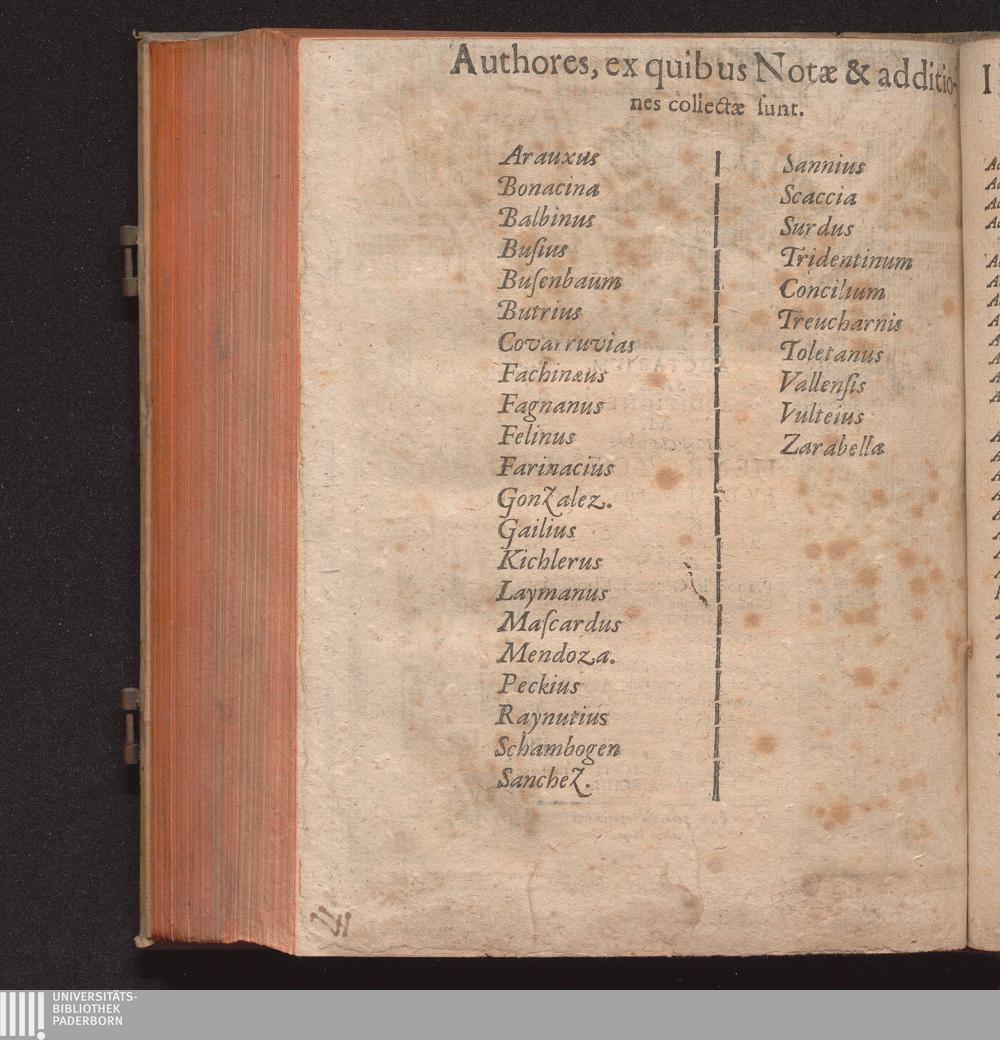 Authores, ex quibus Notæ & additio-
nes collectæ ſunt.
Arauxus
Bonacina
Balbinus
Buſius
Buſenbaum
Butrius
Covarruvias
Fachinæus
Fagnanus
Felinus
Farinacius
Gonzalez.
Gailius
Kichlerus
Laymanus
Maſcardus
Mendoza.
Peckius
Raynutius
Schambogen
Sanchez.
Sannius
Scaccia
Surdus
Tridentinum
Concilium
Treucharnis
Toletanus
Vallenſis
Vulteius
Zarabella
UNIVERSITÄTS-
BIBLIOTHEK
PADERBORN